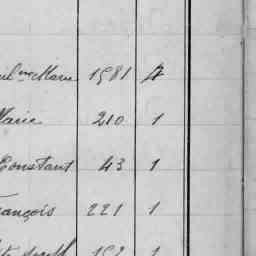 Marie 1981 4
Marie 210 1
Constant 43 1
François 221 1